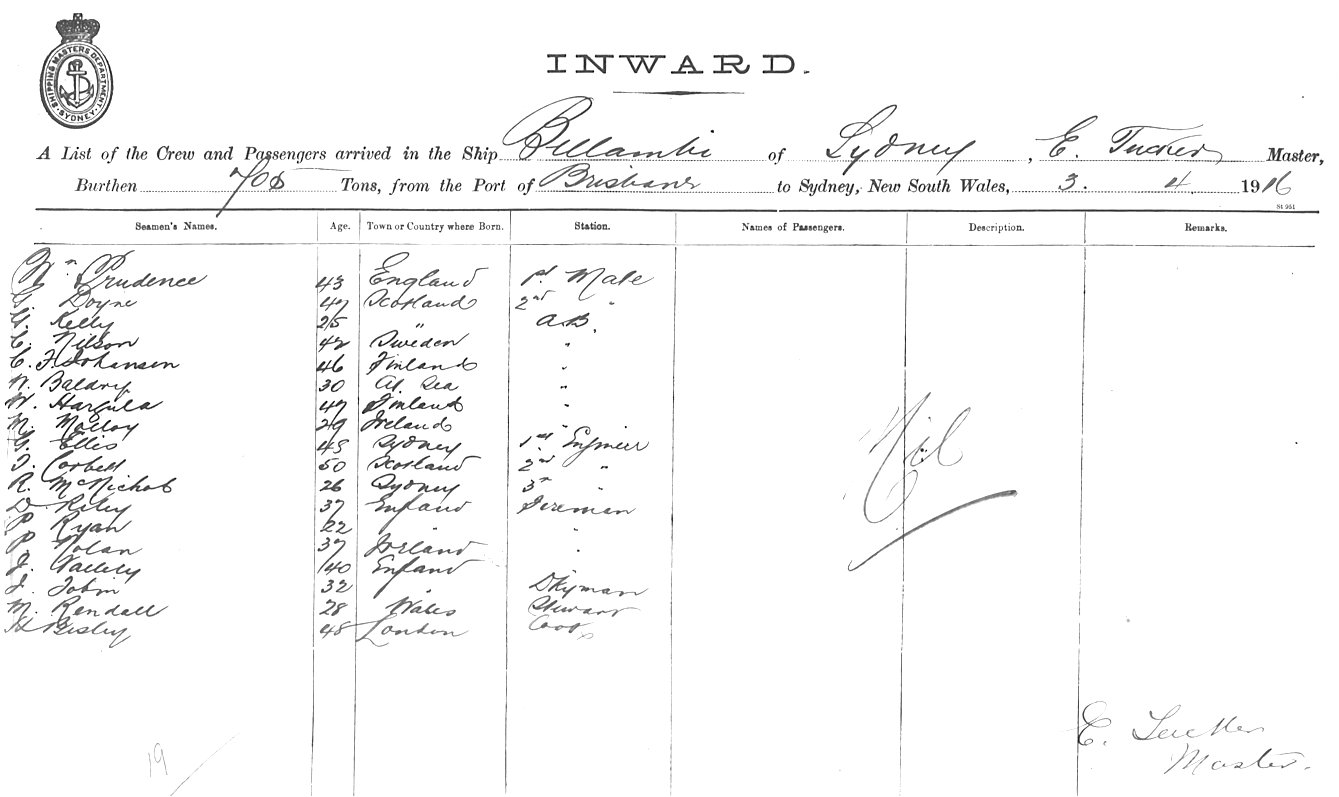 SHIPPING MASTERS DEPARTMENT · SYDNEY ·
INWARD.
A List of the Crew and Passengers arrived in the Ship Bellambi of Sydney, E. Tucker Master,
Burthen 705 Tons, from the Port of Brisbane to Sydney, New South Wales, 3. 4. 1916
St 951
Seamen's Names. Age. Town or Country where Born. Station. Names of Passengers. Description. Remarks.
Wm Prudence 43 England 1st Mate
Doyne 47 Scotland 2nd "
Kelly 25 " A.B.
C. Nilson 42 Sweden "
C. F. Johansen 46 Finland "
W. Baldry 30 At Sea "
W. Hargula 47 Finland "
M. Molloy 29 Ireland "
G. Ellis 45 Sydney 1st Engineer
Corbett 50 Scotland 2nd "
R. McNichol 26 Sydney 3rd "
D. Riley 37 England Fireman
P. Ryan 22 " "
P. Nolan 37 Ireland "
J. 40 England
J. Tobin 32 " Dkyman
M. Rendall 28 Wales Steward
Bisley 48 London Cook
Nil
19
E. Tucker
Master.